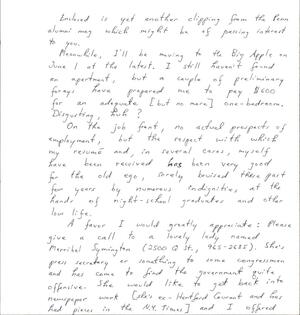 Enclosed is yet another clipping from the Penn
alumni mag which might be of passing interest
to you.
Meanwhile, I'll be moving to the Big Apple on
June 1 at the latest. I still haven't found
an apartment, but a couple of preliminary
forays have prepared me to pay $600
for an adequate [but no more] one-bedroom.
Disgusting, huh?
On the job front, no actual prospects of
employment, but the respect with which
my resumé and, in several cases, myself
have been received has been very good
for the old ego, sorely bruised these past
few years by numerous indignities, at the
hands of night-school graduates and other
low life.
A favor I would greatly appreciate: Please
give a call to a lovely lady named
Merribel Symington (2500 Q St., 965-2685). She's
press secretary or something to some congressman
and has come to find the government quite
offensive. She would like to get back into
newspaper work [she's ex-Hartford Courant and has
had pieces in the N.Y. Times] and I offered